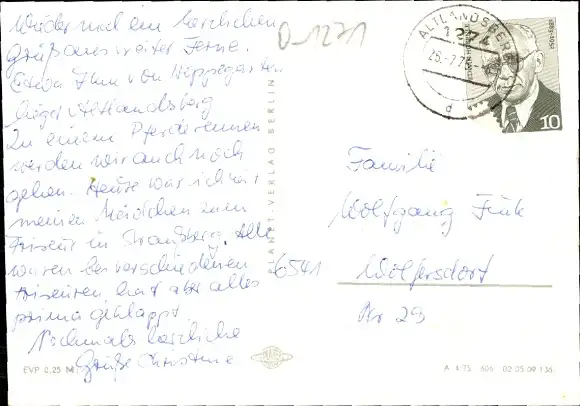 Wieder mal ein herzlichen
Gruß aus weiter Ferne.
Etwa 7km von Hoppegarten
liegt Altlandsberg
Zu einem Pferderennen
werden wir auch noch
gehen. Heute war ich mit
meinen Mädchen zum
Friseur in Strausberg. Alle
waren bei verschiedenen
Friseuren, hat aber alles
prima geklappt.
Nochmals herzliche
Grüße Christine
EVP 0,25 M
PLANET-VERLAG BERLIN
D-1271
ALTLANDSBERG
1274
d
1883-1957
10
Familie
Wolfgang Fink
6541 Wolfersdorf
Nr 29
A 4/75 606 02 05 09 136